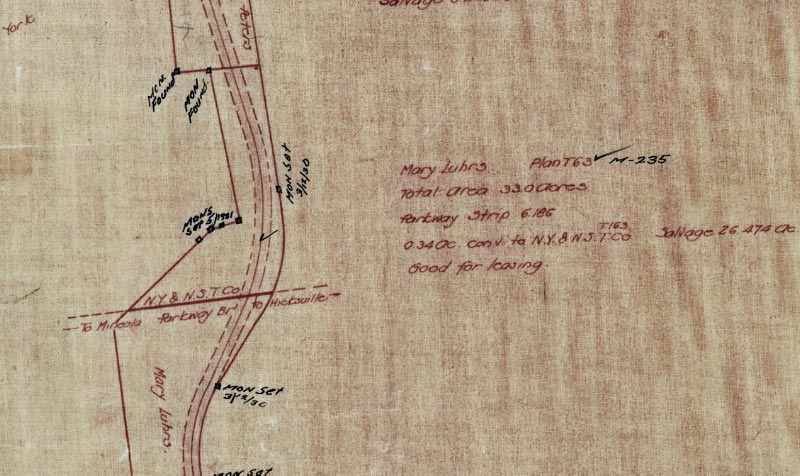 York
Salvage
MON. FOUND
MON FOUND.
MON Set
3/12/30
Mary Luhrs. Plan T63 ✓ M-235
Total Area 33.0 acres
Parkway Strip 6.186
T.163
0.34 Ac. conv. to N.Y. & N.S.T. Co Salvage 26.474 Ac.
Good for leasing.
MONS
Set 5/1931
N.Y. & N.S.T. Co
To Mineola Parkway Br. to Hicksville
Mary Luhrs.
MON Set
3/12/30
MON Set